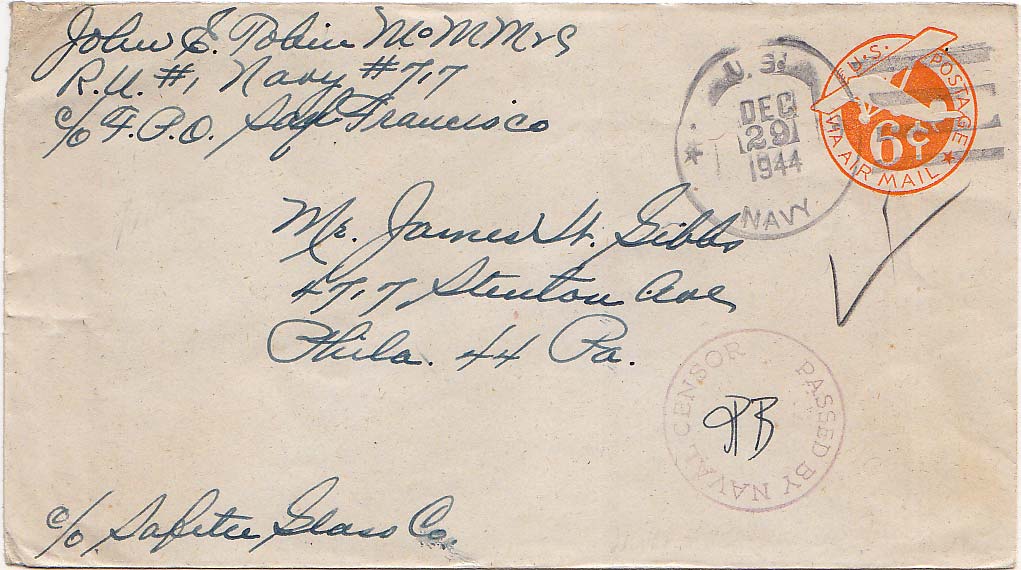 John E. Tobin MoMM2/c
R.U. #1 Navy #717
c/o F.P.O. San Francisco
U.S.
DEC
29
1944
NAVY
U.S. POSTAGE
6¢
VIA AIR MAIL
Mr. James H. Gibbs
4717 Stenton Ave
Phila. 44 Pa.
PASSED BY NAVAL CENSOR
c/o Safetee Glass Co.